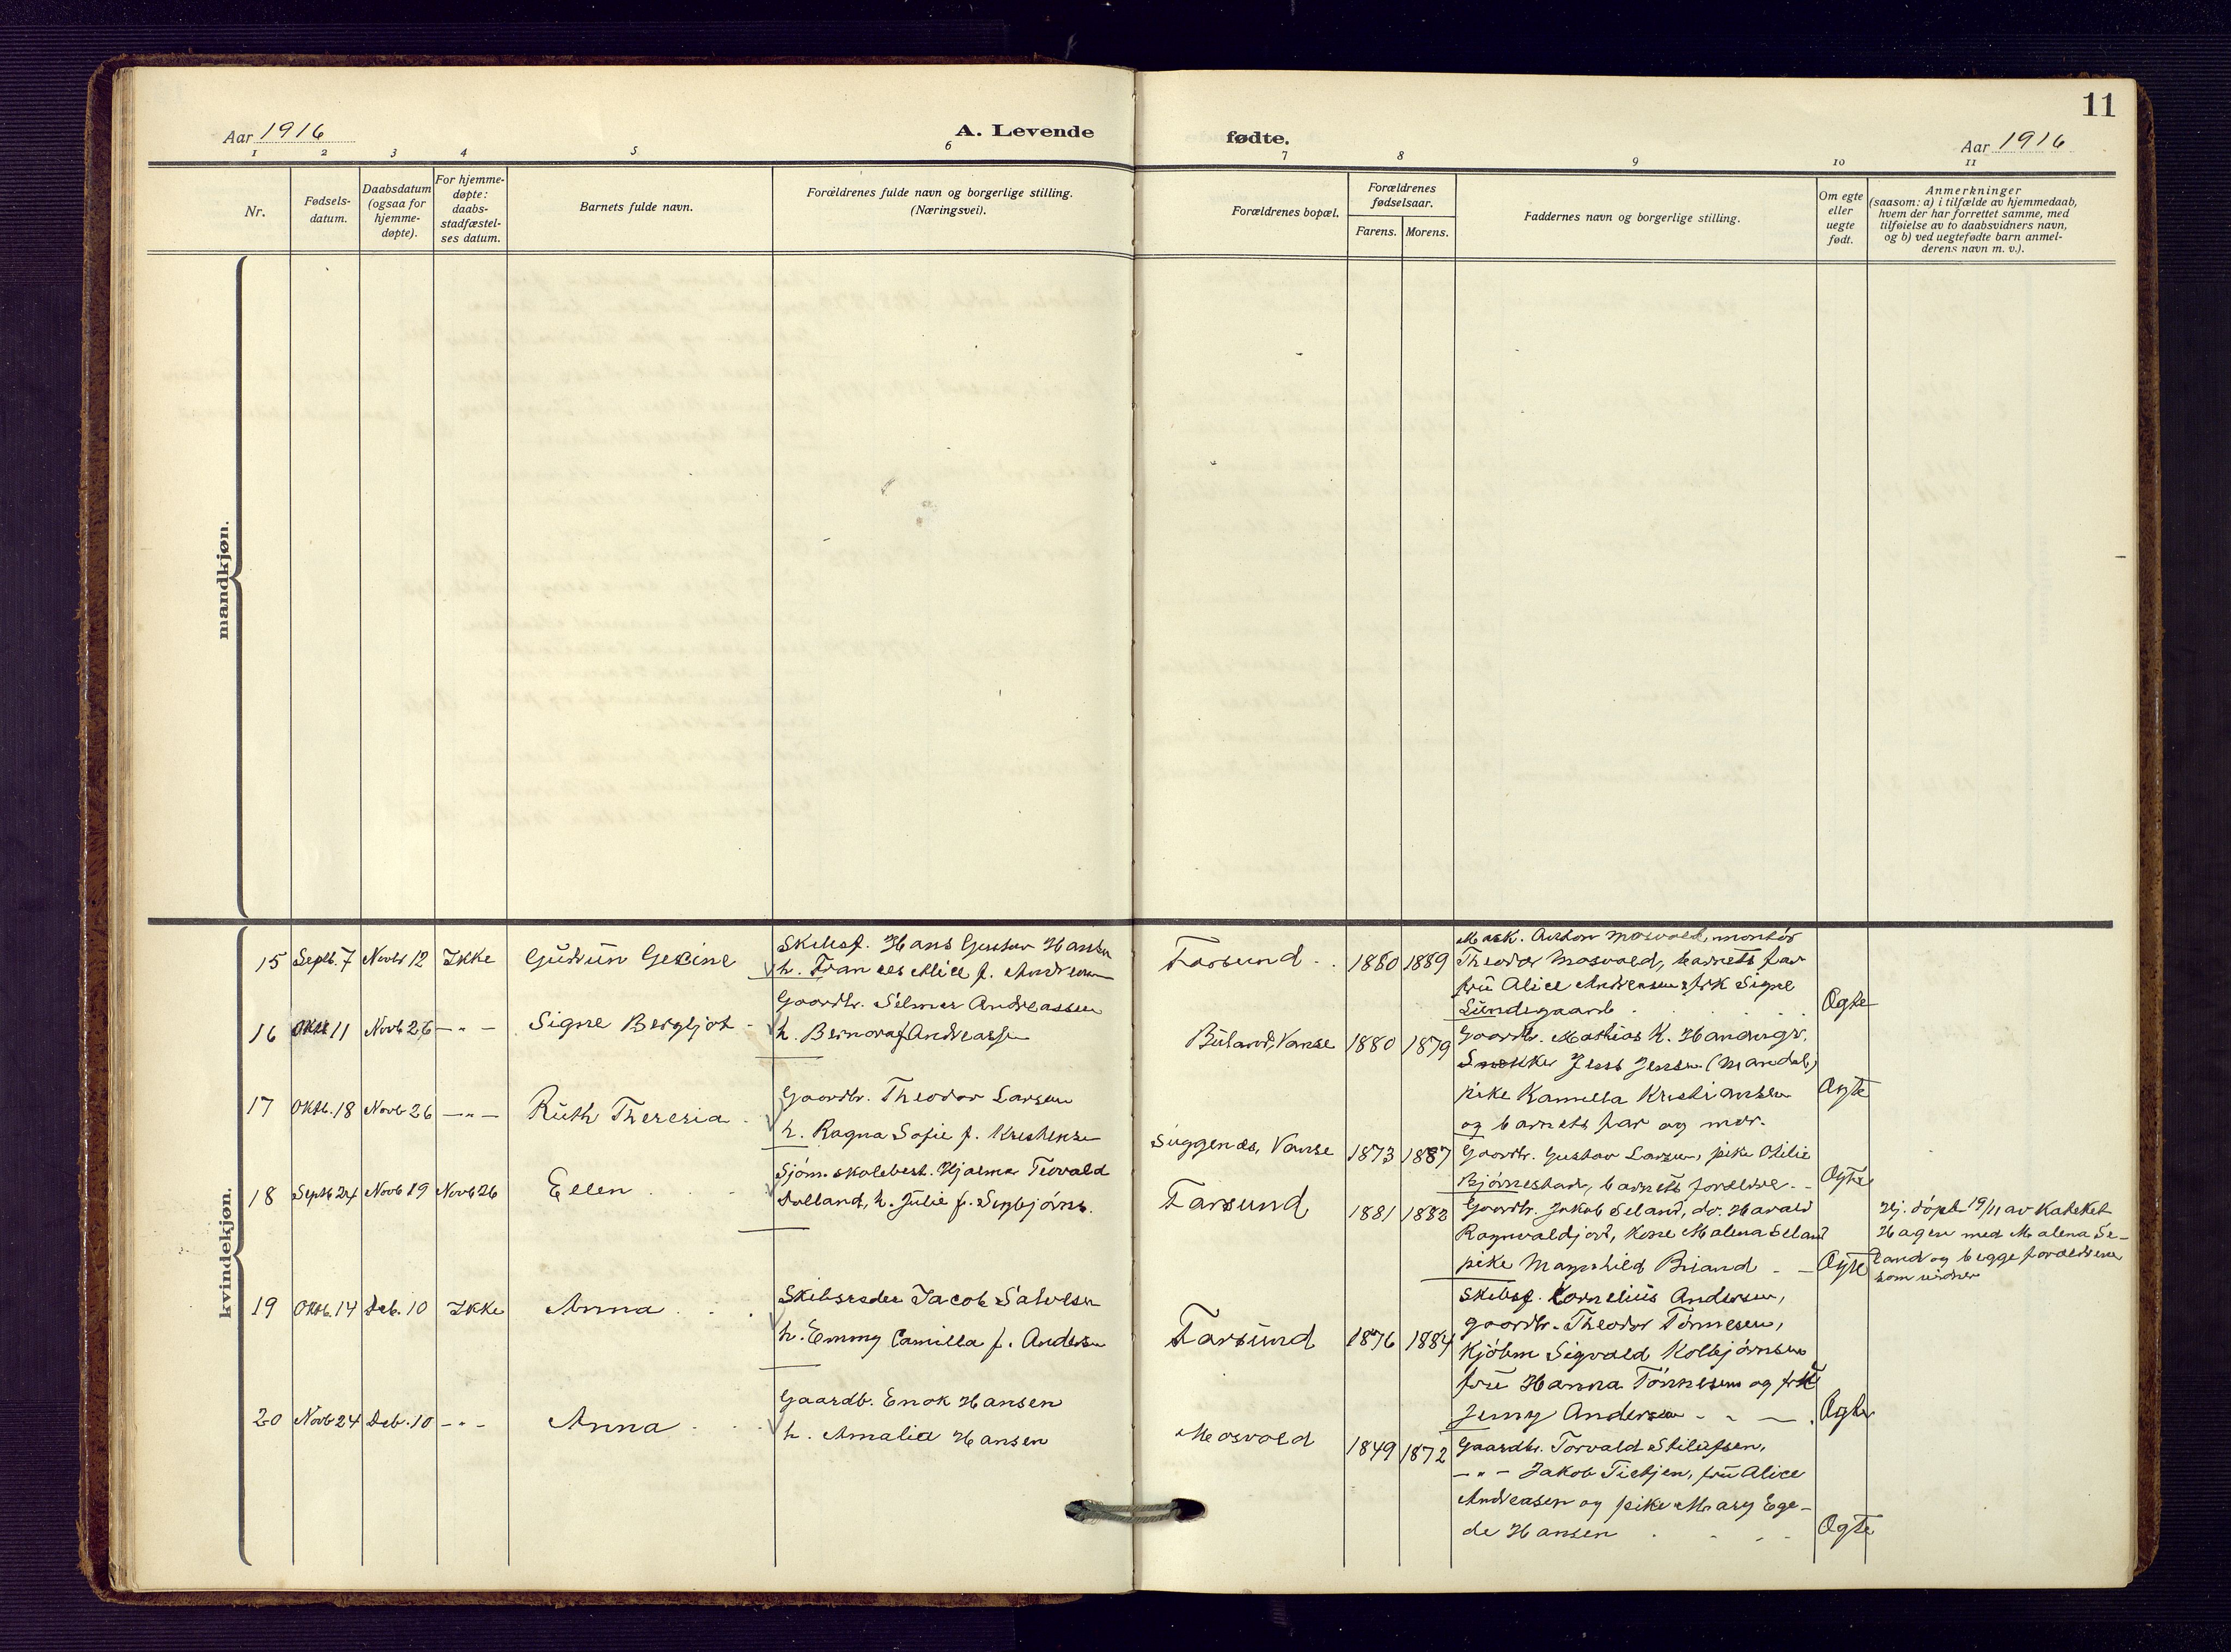 11
Aar 1916
A. Levende
fødte.
Aar 1916
1 2 3 4 5 6 7 8 9 10 11
Nr.
Fødsels-
datum.
Daabsdatum
(ogsaa for
hjemme-
døpte).
For hjemme-
døpte:
daabs-
stadfæstel-
ses datum.
Barnets fulde navn.
Forældrenes fulde navn og borgerlige stilling.
(Næringsvei).
Forældrenes bopæl.
Forældrenes
fødselsaar.
Farens. Morens.
Faddernes navn og borgerlige stilling.
Om egte
eller
uegte
født.
Anmerkninger
(saasom: a) i tilfælde av hjemmedaab,
hvem der har forrettet samme, med
tilføielse av to daabsvidners navn,
og b) ved uegtefødte barn anmel-
derens navn m. v.).
mandkjøn.
kvindekjøn.
15 Septb. 7 Novbr 12 Ikke Gudrun Gesine
Skibsf. Hans Gustav Hansen
h. Frances Alice f. Andreasen
Farsund
1880 1889
Mask. Anton Mosvold, montør
Theodor Mosvold, barnets far
fru Alice Andreasen & frk Signe
Lundegaard
Ægte
16 Oktb 11 Novb 26 — " — Signe Bergljot
Gaardbr. Selmer Andreassen
h. Bernora f Andreassen
Buland, Vanse 1880 1879
Gaardbr. Mathias K.
Snekker Jens Jensen (Mandal)
pike Kamilla Kristiansen
og barnets far og mor.
Ægte
17 Oktb. 18 Novb 26 — " — Ruth Theresia
Gaardbr. Theodor Larsen
h. Ragna Sofie f. Kristensen
Suggenes, Vanse 1873 1887
Gaardbr. Gustav Larsen, pike Otilie
Bjørnestad, barnets forældre.
Ægte
18 Septb 24 Novb 19 Novb 26 Ellen
Sjøm. skolebest. Hjalmar Teovald
Dolland, h. Julie f. Sigbjørns.
Farsund 1881 1883
Gaardbr. Jakob Seland, do. Harald
Ragnvaldjord, Kone Malena Seland
pike Magnhild Briand
Ægte
Hj. døpt 19/11 av Kateket
Hagen med Malena Se-
land og begge forældrene
som vidner
19 Oktb. 14 Deb. 10 Ikke Anna
Skibsreder Jacob Salvesen
h. Emmy Camilla f. Andersen
Farsund 1876 1884
Skibsf. Cornelius Andersen,
gaardbr. Theodor Tønnesen,
Kjøbm Sigvald Kolbjørnsen
fru Hanna Tønnesen og frk
Jenny Andersen
Ægte
20 Novb 24 Deb. 10 — " — Anna
Gaardb. Enok Hansen
h. Amalia Hansen
Mosvold 1849 1872
Gaardbr. Torvald Stilufsen,
— " — Jakob Tietjen, fru Alice
Andreasen og pike Mary Ege-
de Hansen
Ægte